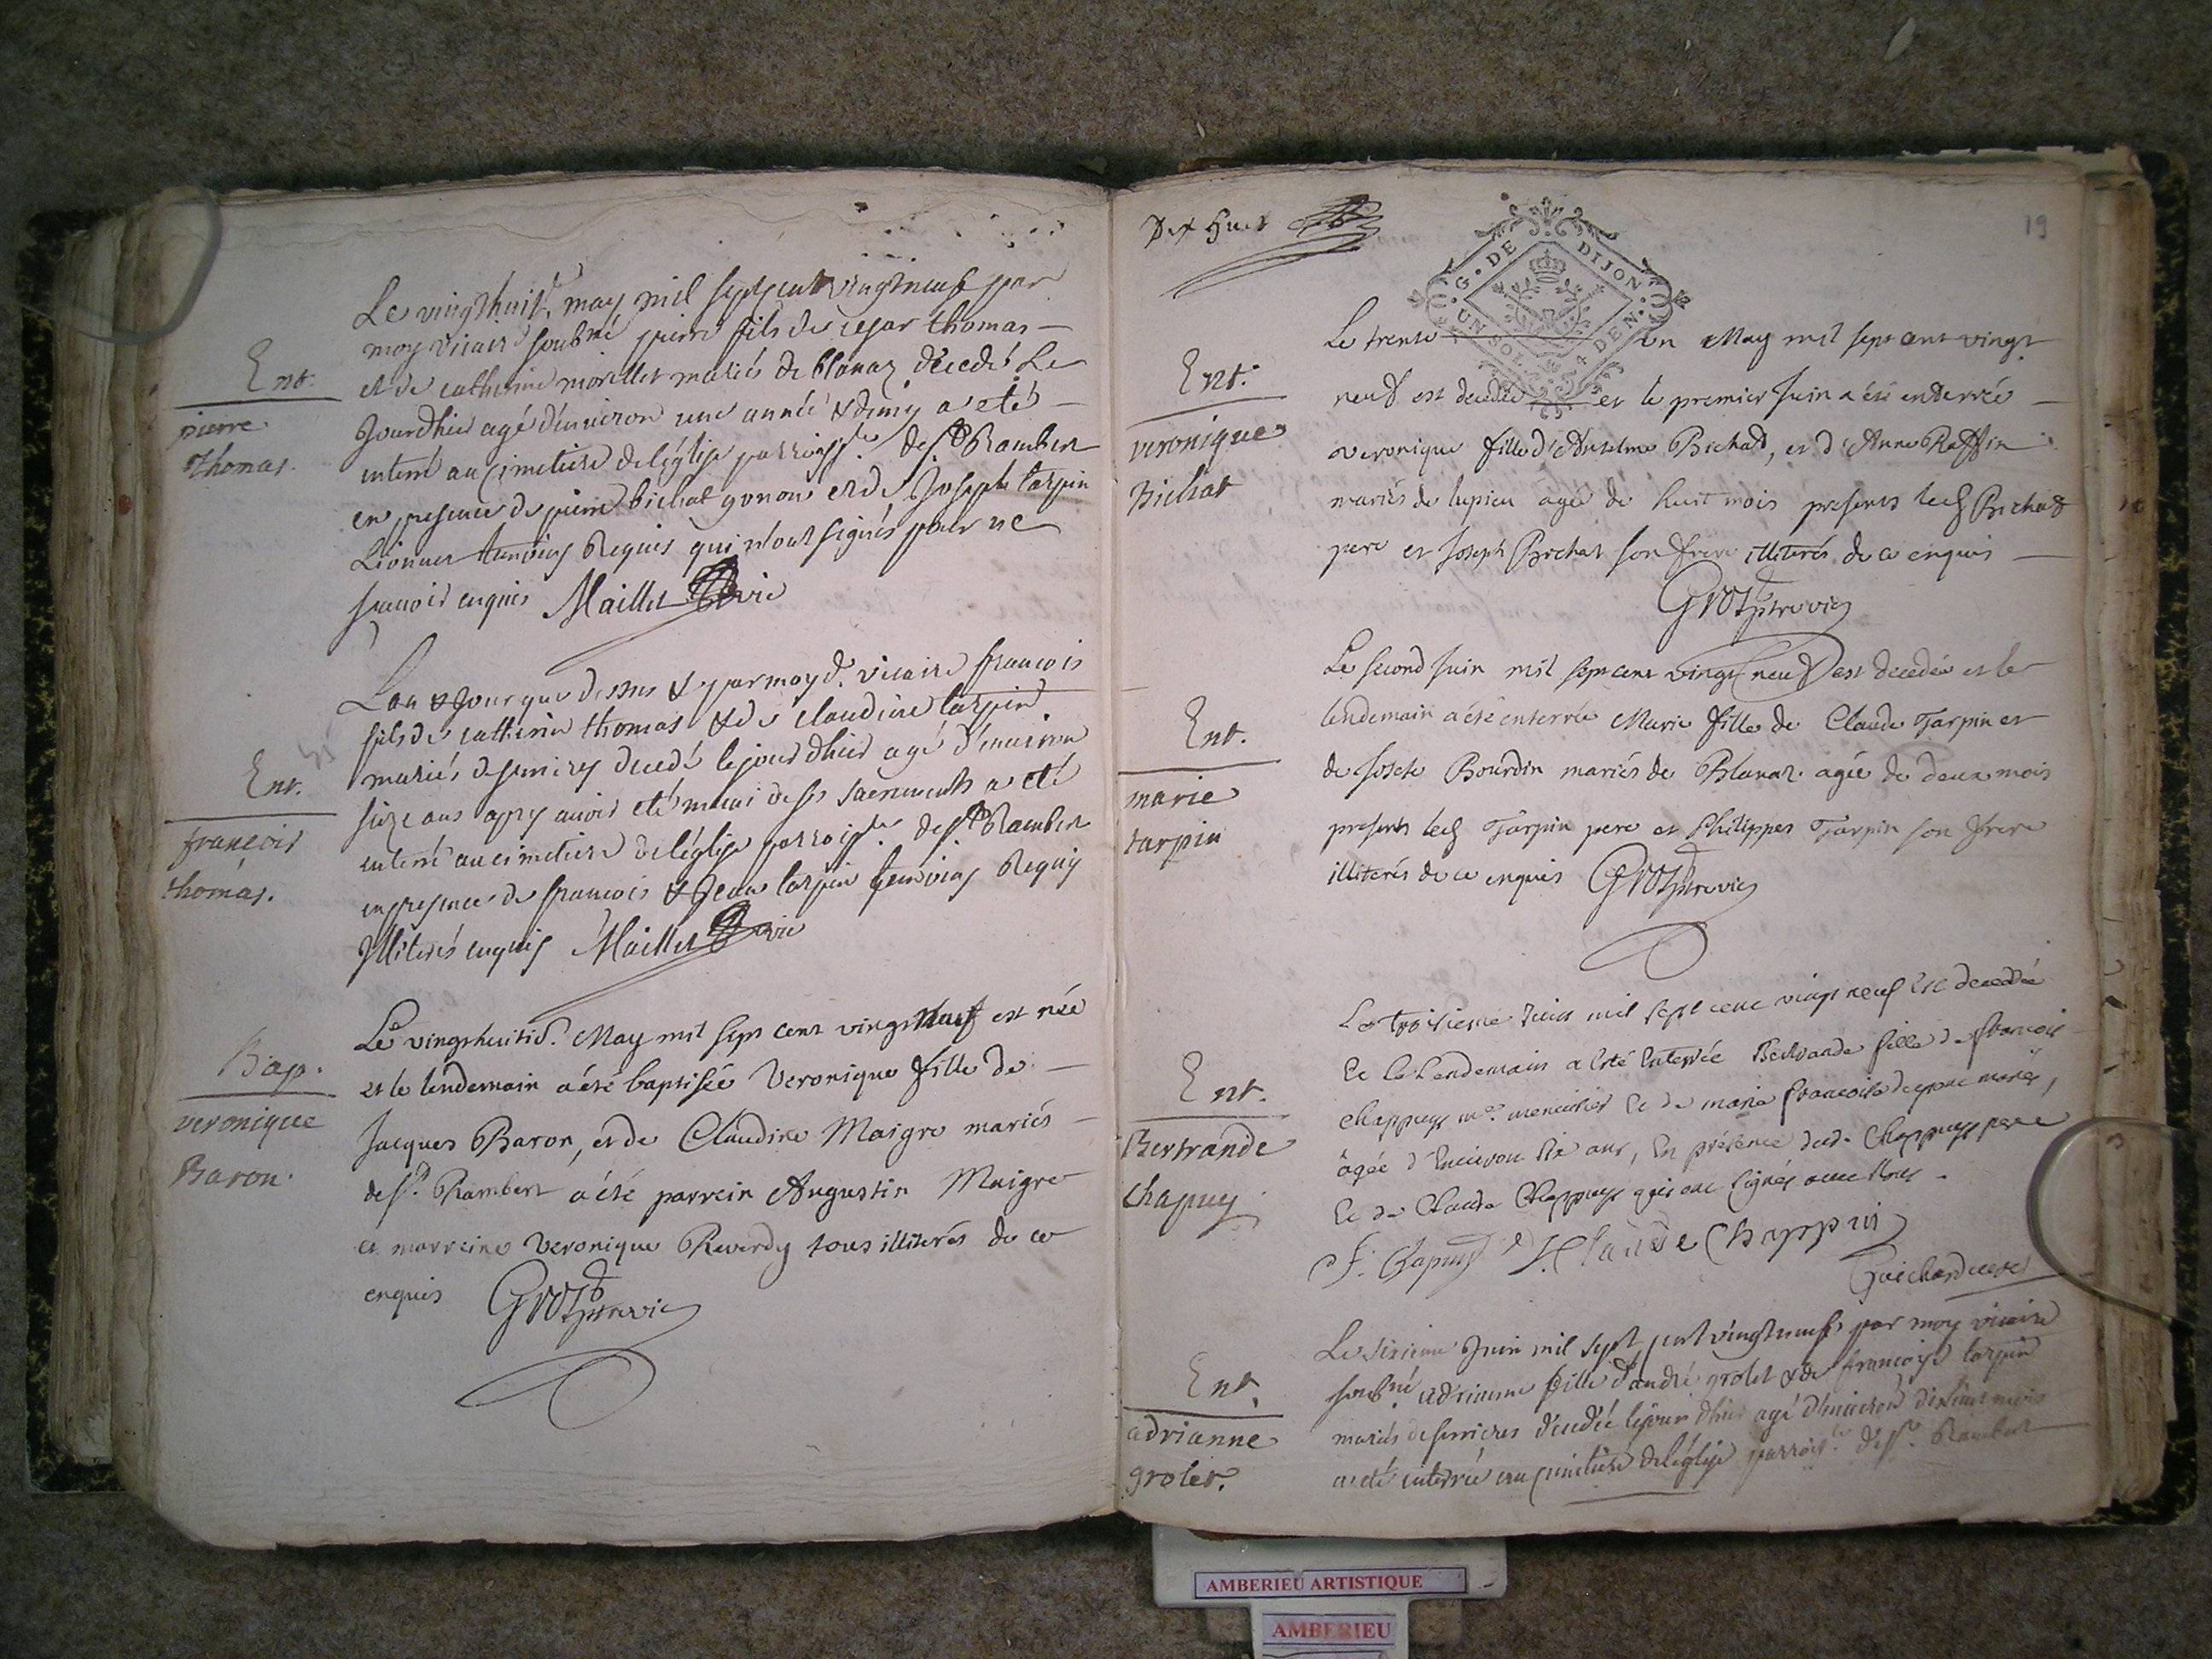 Ent.
pierre
thomas.
Le vingthuit.e may mil sept cent vingt neuf par
moy vicaire soubné pierre fils de cesar thomas
et de catherine morellet mariés de blanaz décedé Le
Jourdhier agé d'environ une année & demy a eté
enterré au cimetiere de l'église parroiss.le de st Rambert
en presence de pierre bichat gonon et de Joseph tarpin
Lionnet temoins Requis qui n'ont signés pour ne
scavoir enquis Maillet vic
Ent.
francois
thomas.
L'an & Jour que dessus & par moy d. vicaire francois
fils de catherin thomas & de claudine tarpin
mariés de serrieres decedé le jourdhier agé d'environ
seize ans apres avoir eté muni de ses sacrements a eté
enterré au cimetiere de l'église parroiss.le de st Rambert
en presence de francois & Jean tarpin temoins Requis
Illiterés enquis Maillet vic
Bap.
veronique
Baron.
Le vingthuitie. May mil sept cent vingt neuf est née
et le lendemain a été baptisée Veronique fille de
Jacques Baron, et de Claudine Maigre mariés
de st. Rambert a été parrein Augustin Maigre
et marreine Veronique Reverdy tous illiterés de ce
enquis Groz ptre vic
Dix Huit
19
G. DE DIJON.
UN SOL 4 DEN.
Ent.
veronique
Bichat
Le trente un May mil sept cent vingt
neuf est decedée et le premier Juin a été enterrée
Veronique fille d'Anselme Bichat, et d'Anne Raffin
mariés de lupieu agée de huit mois presents led Bichat
pere et Joseph Bichat son frere illiterés de ce enquis
Groz ptre vic
Ent.
marie
tarpin
Le second Juin mil sept cent vingt neuf est decedée et le
lendemain a été enterrée Marie fille de Claude Tarpin et
de Josete Bourdin mariés de Blanaz agée de deux mois
presents led Tarpin pere et Philippes Tarpin son frere
illiterés de ce enquis Groz ptre vic
Ent.
Bertrande
chapuy
Le troisieme Juin mil sept cent vingt neuf Est decedée
Et le Lendemain a Esté Enterrée Bertrande fille de francois
Chappuys me. menuisier Et de marie francoise mariés,
âgée d'Environ six ans, En présence dud. Chappuys pere
Et de Claude Chappuys qui ont signés avec Nous.
F. Chapuis Claude Chappui
Guichard curé
Ent.
adrianne
grolet.
Le sixieme Juin mil sept cent vingt neuf par moy vicaire
soubné. adrianne fille d'andré grolet & de francoise tarpin
mariés de serrieres decedée le jour d'hier agé d'environ dix huit mois
a eté enterrée au cimetiere de l'église parrois.le de st. Rambert
AMBERIEU ARTISTIQUE
AMBERIEU